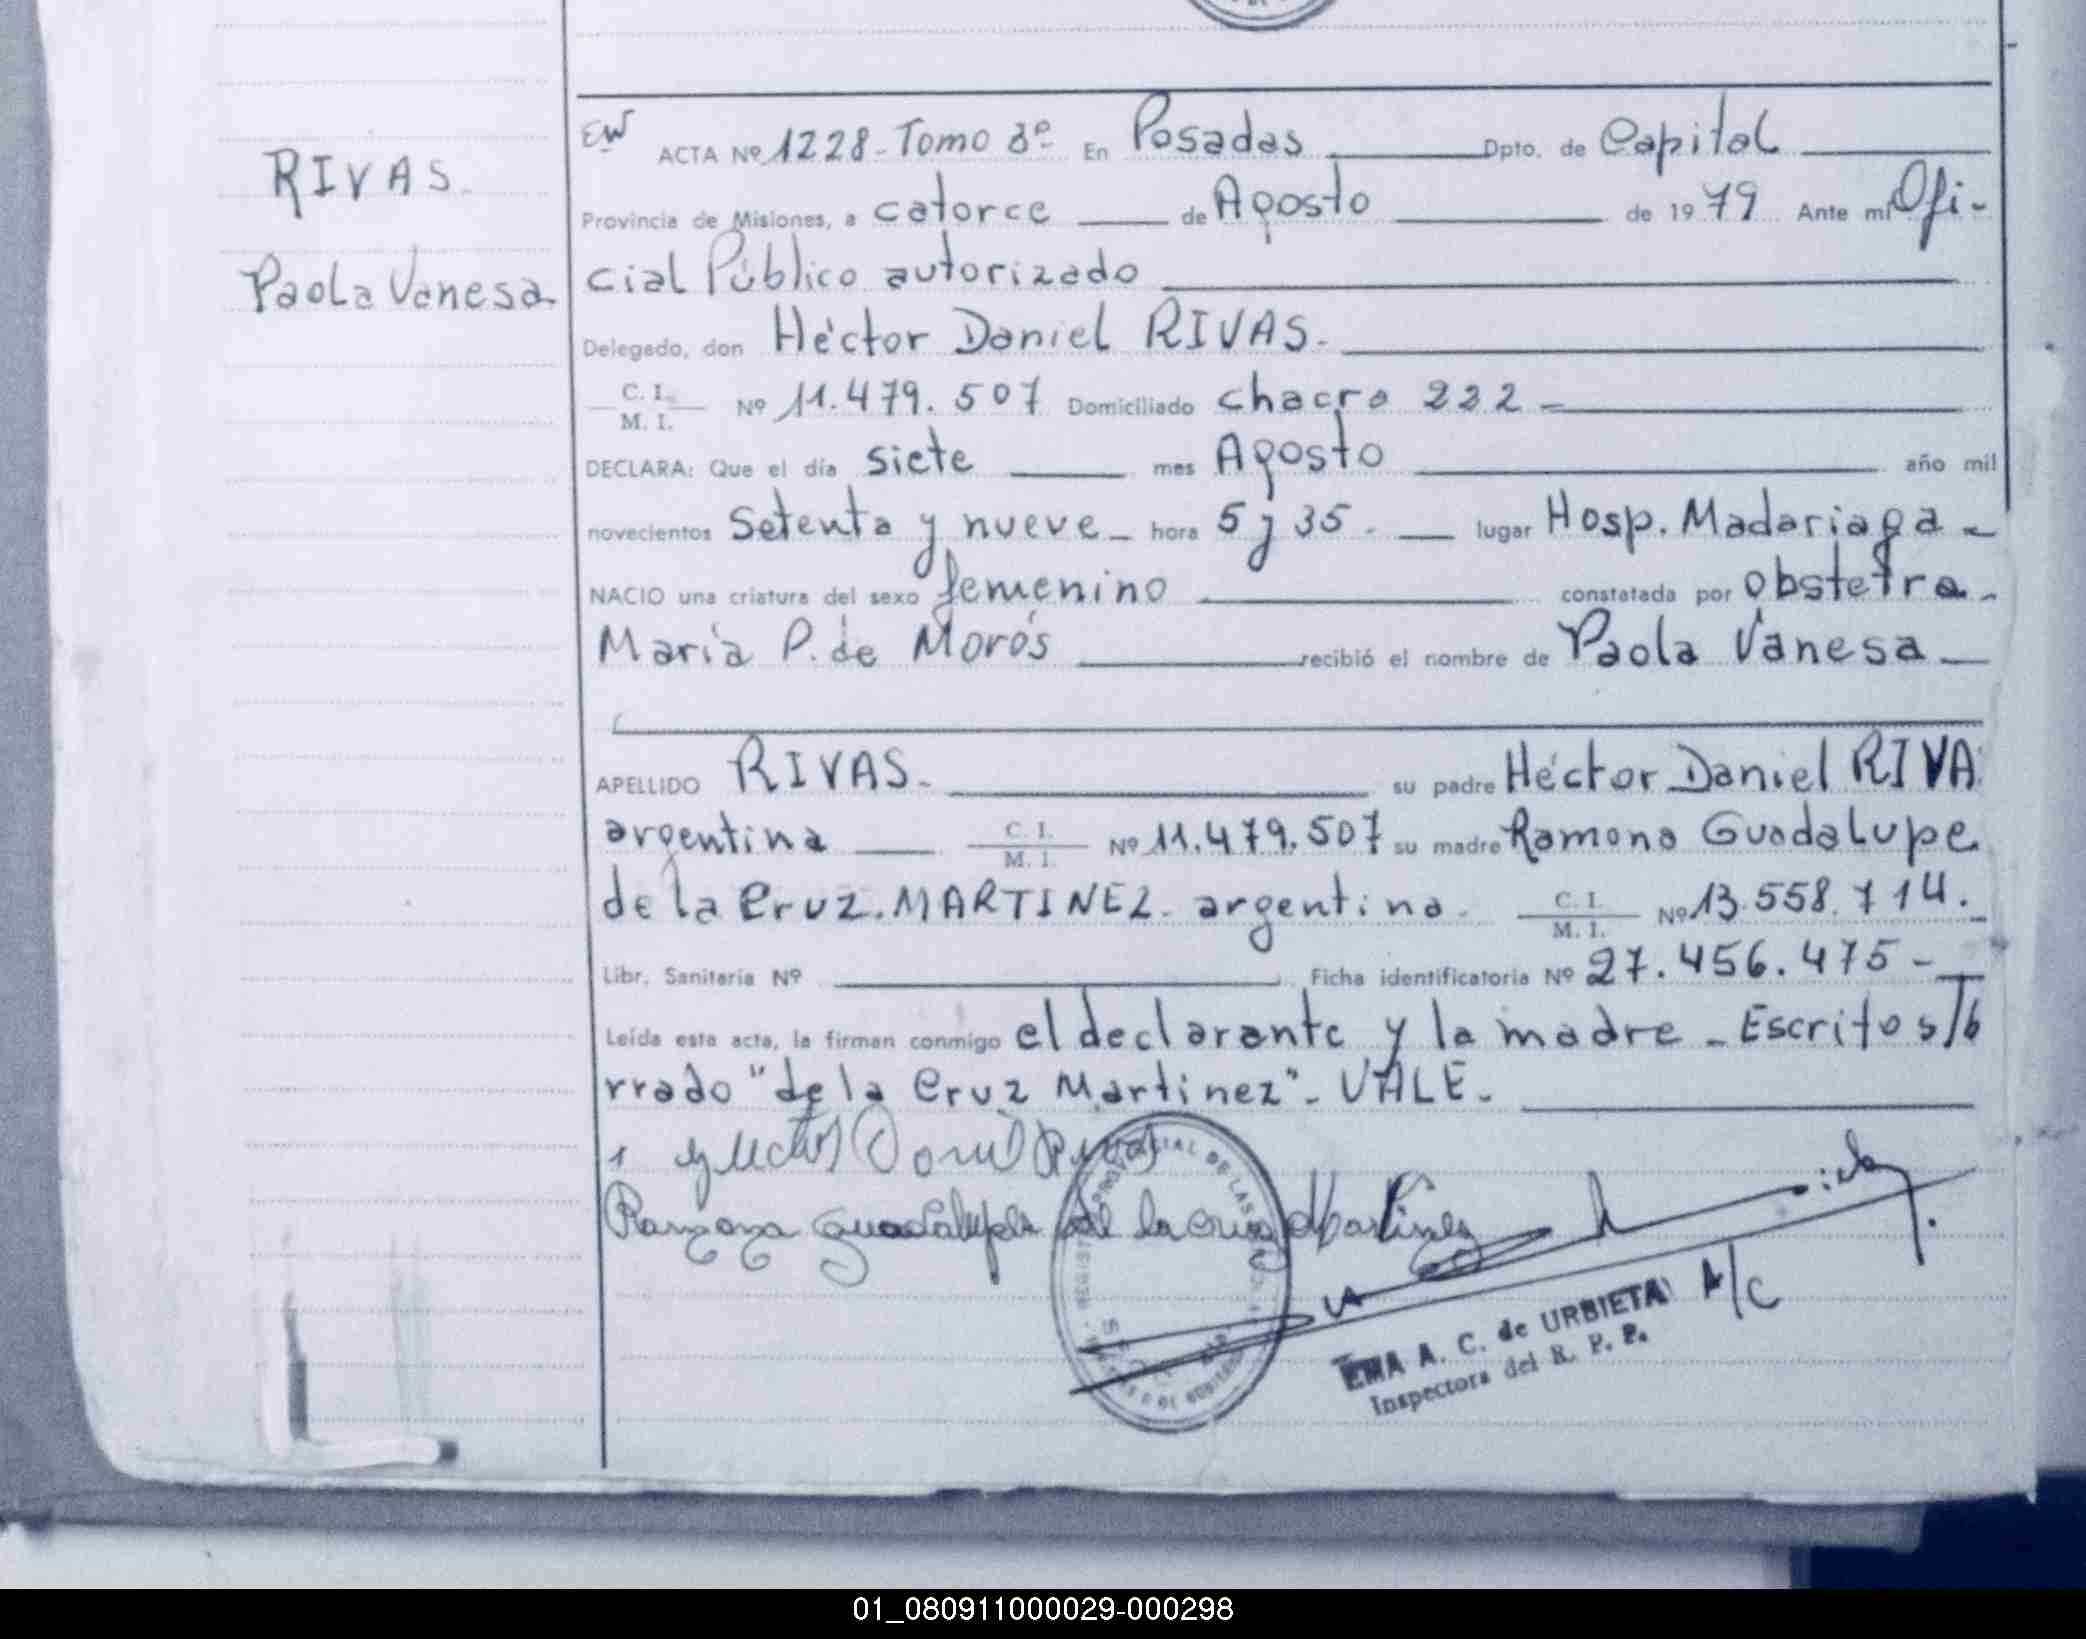 RIVAS.
Paola Vanesa
ACTA Nº 1228 - Tomo 3º En Posadas Dpto. de Capital
Provincia de Misiones, a catorce de Agosto de 1979 Ante mi Ofi-
cial Público autorizado
Delegado, don Héctor Daniel RIVAS.
C. I.
M. I. Nº 11.479.507 Domiciliado chacra 222 -
DECLARA: Que el día siete mes Agosto año mil
novecientos Setenta y nueve - hora 5 y 35 - lugar Hosp. Madariaga -
NACIO una criatura del sexo femenino constatada por obstetra -
María P. de Morós recibió el nombre de Paola Vanesa
APELLIDO RIVAS - su padre Héctor Daniel RIVA
argentina C. I.
M. I. Nº 11.479.507 su madre Ramona Guadalupe
de la Cruz. MARTINEZ - argentina - C. I.
M. I. Nº 13.558.714.
Libr. Sanitaria Nº Ficha identificatoria Nº 27.456.475 -
Leída esta acta, la firman conmigo el declarante y la madre - Escrito s/b
rrado "de la Cruz Martinez" - VALE -
Ramona Guadalupe de la Cruz Martinez
EMA A. C. de URBIETA A/C
Inspectora del R. P. P.
01_080911000029-000298